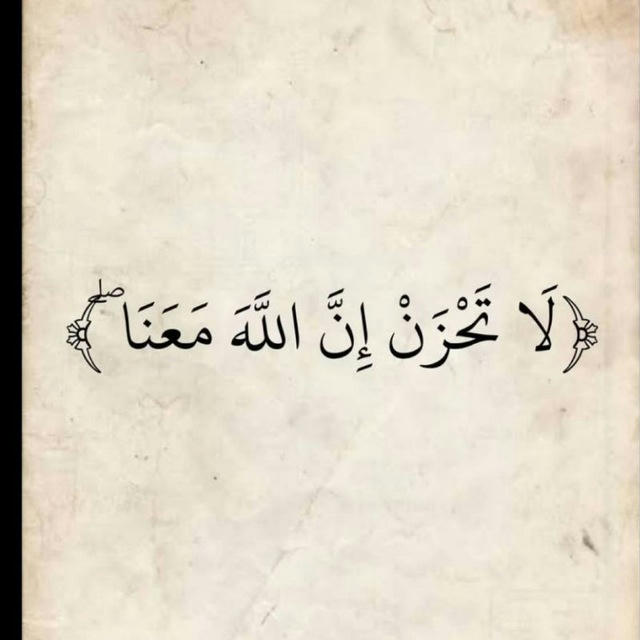 ﴿لَا تَحْزَنْ إِنَّ اللَّهَ مَعَنَا ۖ﴾